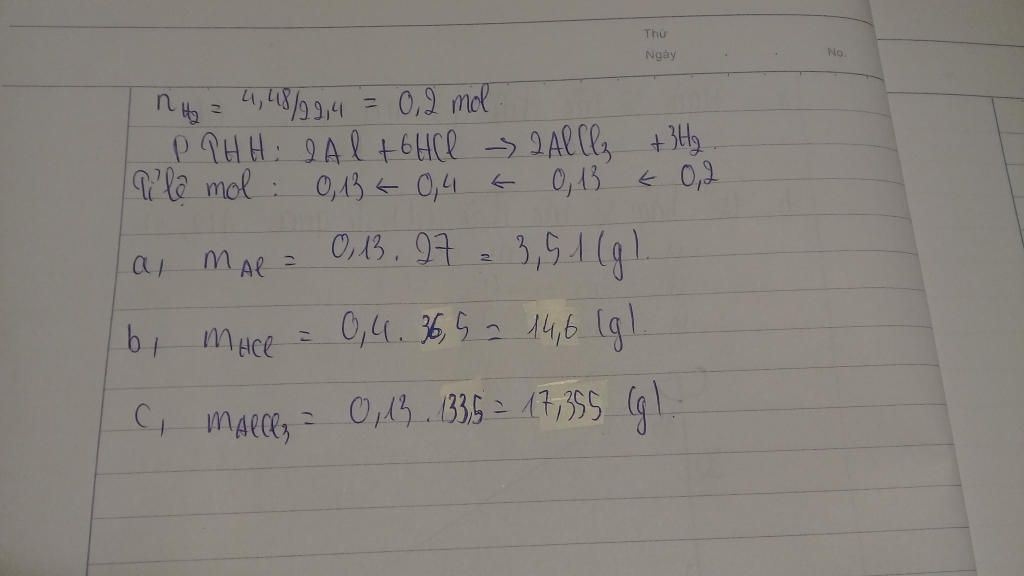 Thứ
Ngày . . No.
n H₂ = 4,48/22,4 = 0,2 mol.
PTHH: 2Al + 6HCl → 2AlCl₃ + 3H₂.
Tỉ lệ mol: 0,13 ← 0,4 ← 0,13 ← 0,2
a, m Al = 0,13 . 27 = 3,51 (g).
b, m HCl = 0,4 . 36,5 = 14,6 (g).
c, m AlCl₃ = 0,13 . 133,5 = 17,355 (g).